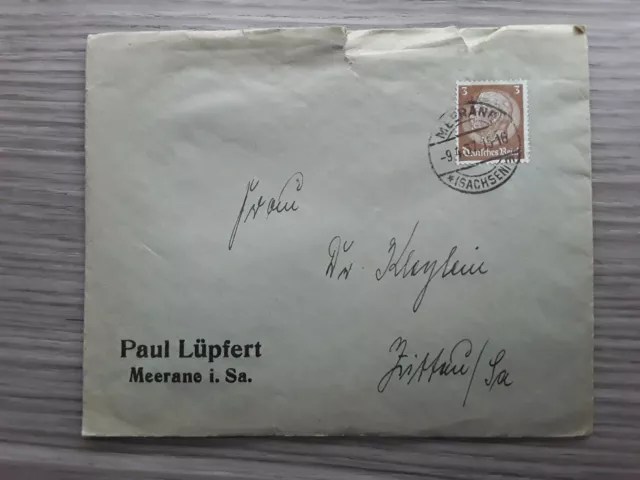 3 3
Deutsches Reich
MEERANE
(SACHSEN)
Frau
Dr. Kleylein
Zittau/Sa
Paul Lüpfert
Meerane i. Sa.